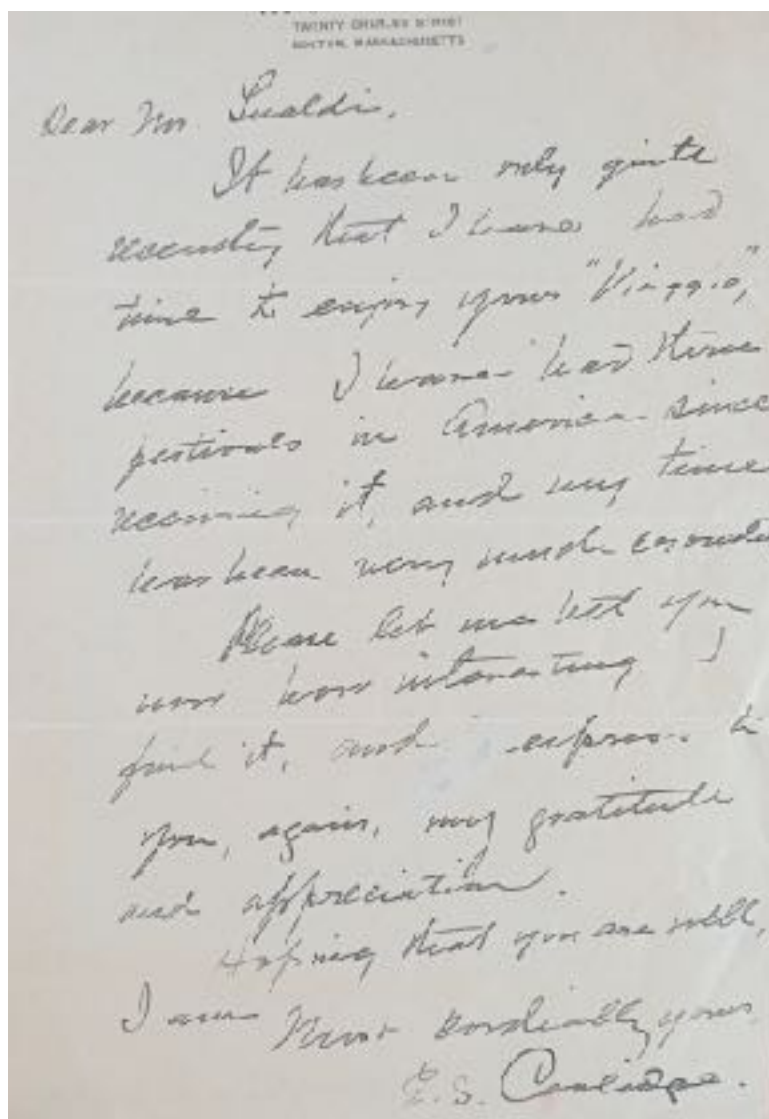 TWENTY CHARLES STREET
BOSTON, MASSACHUSETTS
Dear Mr. Lualdi,
It has been only quite
recently that I have had
time to enjoy your "Viaggio,"
because I have had three
festivals in America since
receiving it, and my time
has been very much crowded
Please let me tell you
now how interesting I
find it, and express to
you, again, my gratitude
and appreciation.
Hoping that you are well,
I am Most cordially yours
E. S. Coolidge.